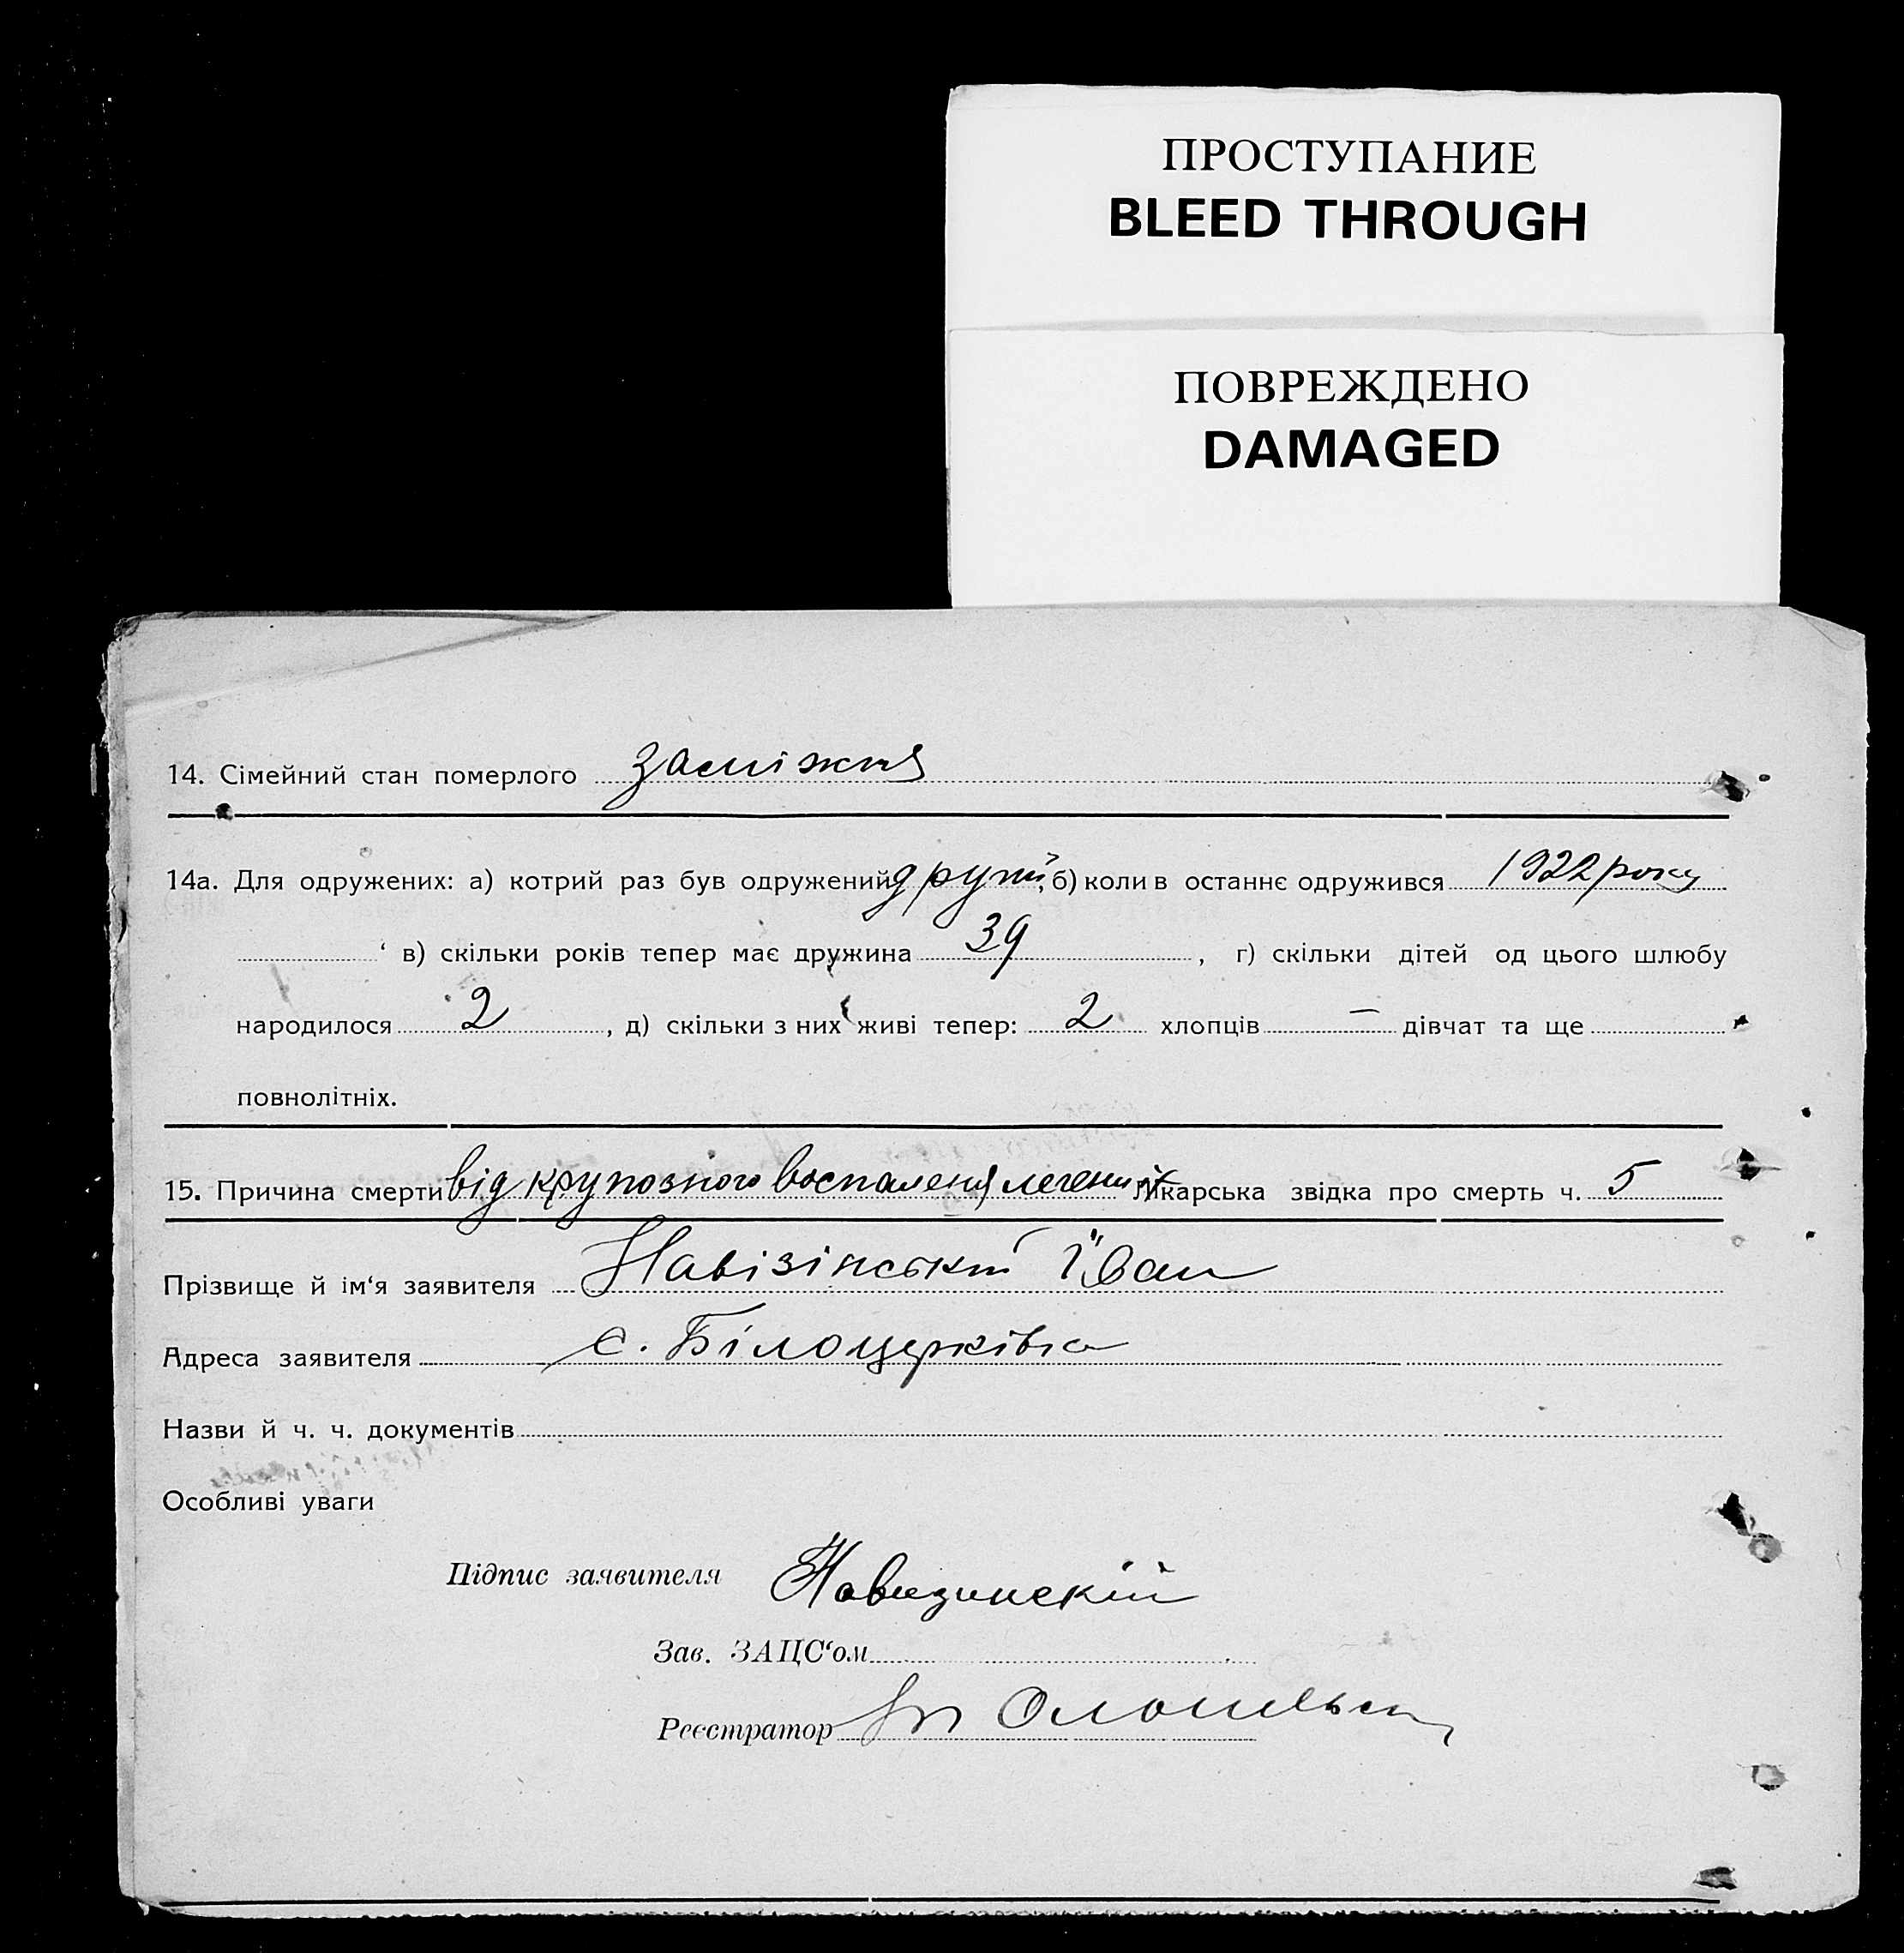 ПРОСТУПАНИЕ
BLEED THROUGH
ПОВРЕЖДЕНО
DAMAGED
14. Сімейний стан померлого заміжня
14а. Для одружених: а) котрий раз був одружений другий, б) коли в останнє одружився 1922 року
в) скільки років тепер має дружина 39, г) скільки дітей од цього шлюбу
народилося 2, д) скільки з них живі тепер: 2 хлопців — дівчат та ще
повнолітніх.
15. Причина смерти від крупозного воспаленя легених Лікарська звідка про смерть ч. 5
Прізвище й ім‘я заявителя Навізінський Іван
Адреса заявителя с. Білоцерківка
Назви й ч. ч. документів
Особливі уваги
Підпис заявителя Навизинскій
Зав. ЗАЦС‘ом
Реєстратор